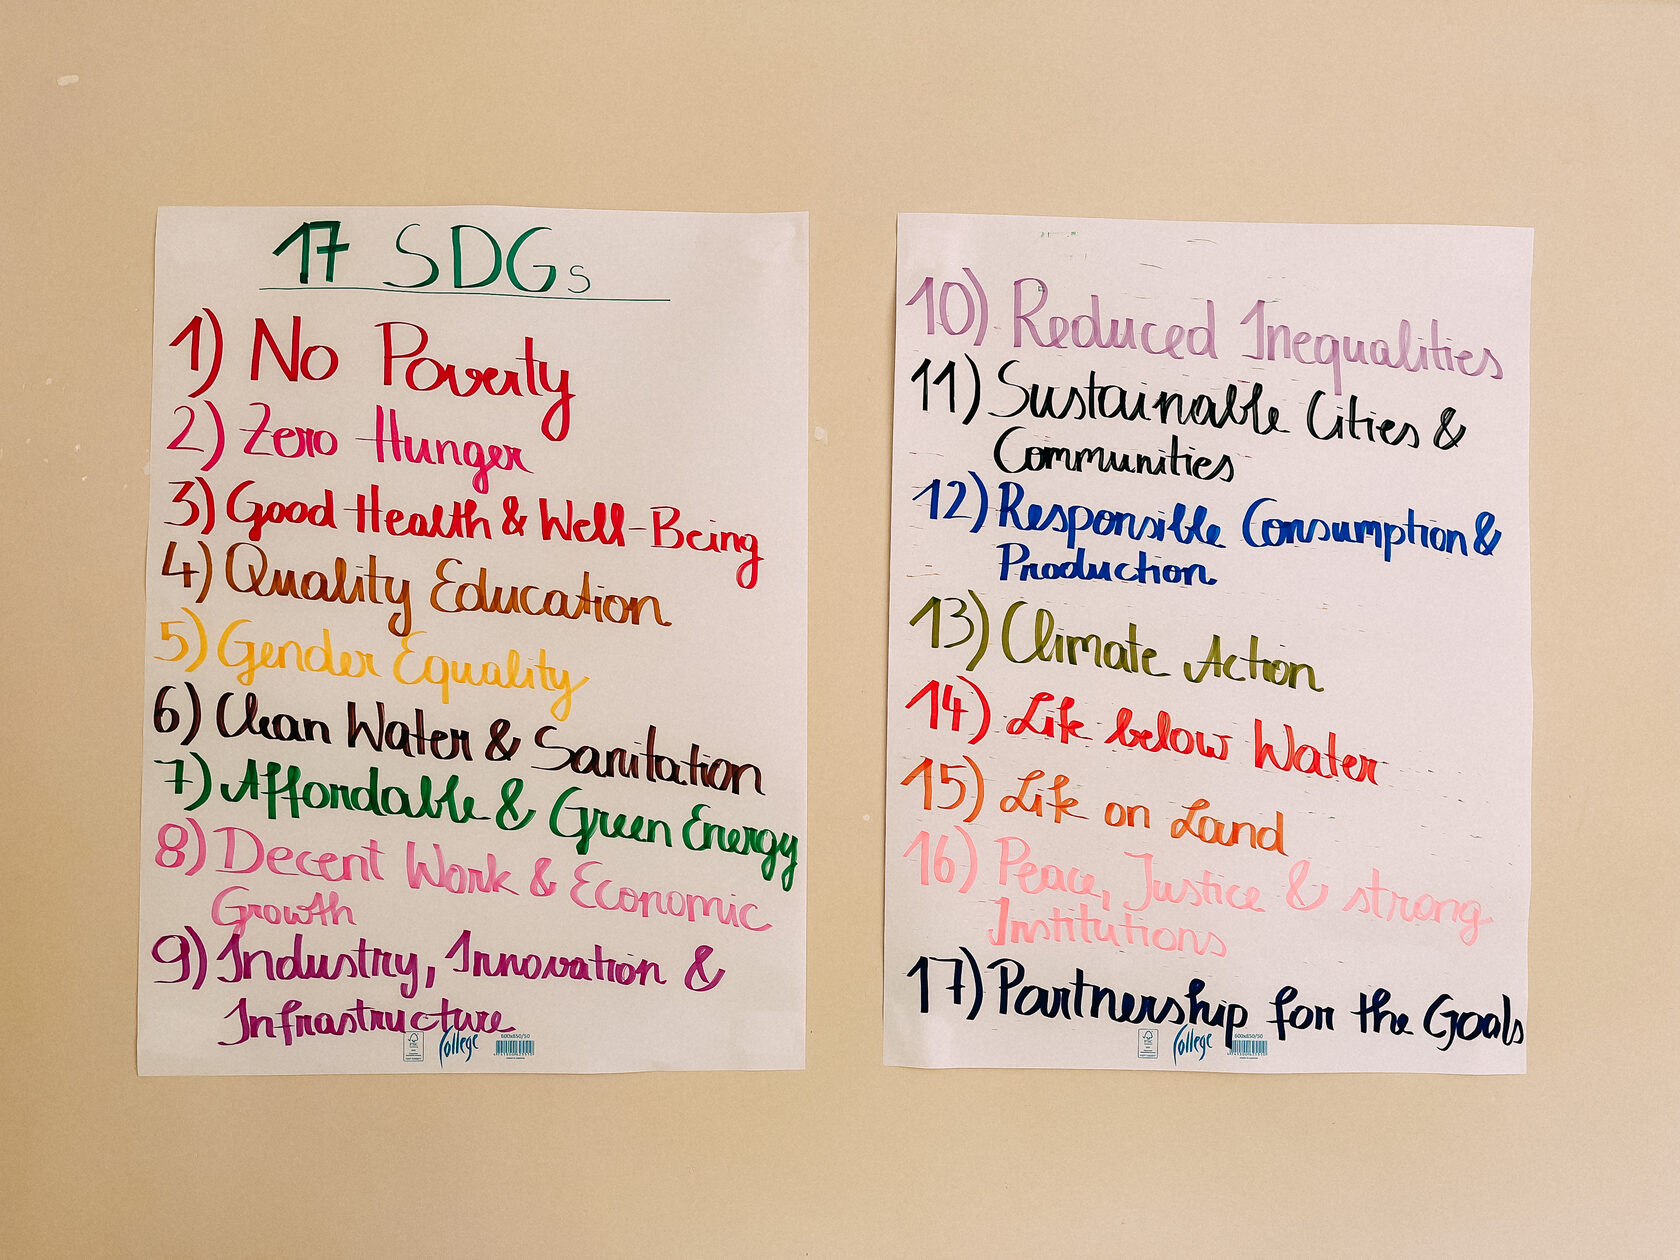 17 SDGs
1) No Poverty
2) Zero Hunger
3) Good Health & Well-Being
4) Quality Education
5) Gender Equality
6) Clean Water & Sanitation
7) Affordable & Green Energy
8) Decent Work & Economic
Growth
9) Industry, Innovation &
Infrastructure
College
600x850/50
10) Reduced Inequalities
11) Sustainable Cities &
Communities
12) Responsible Consumption &
Production
13) Climate Action
14) Life below Water
15) Life on Land
16) Peace, Justice & strong
Institutions
17) Partnership for the Goals
College
600x850/50